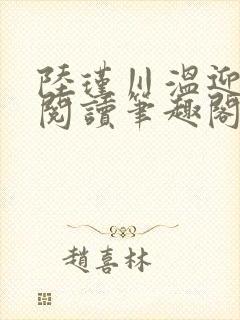 陸瑾川溫迎
閱讀筆趣閣
趙喜林